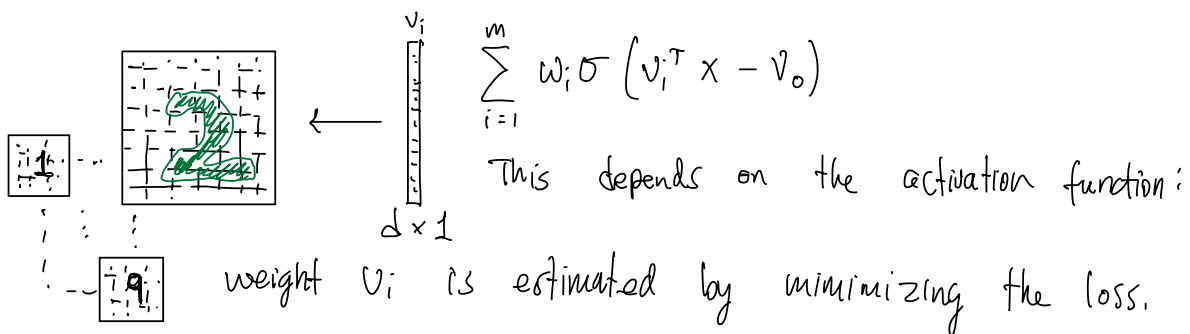 v_i
\sum_{i=1}^{m} w_i σ (v_i^T x - v_0)
2
1
This depends on the activation function:
d × 1
9
weight v_i is estimated by mimimizing the loss.